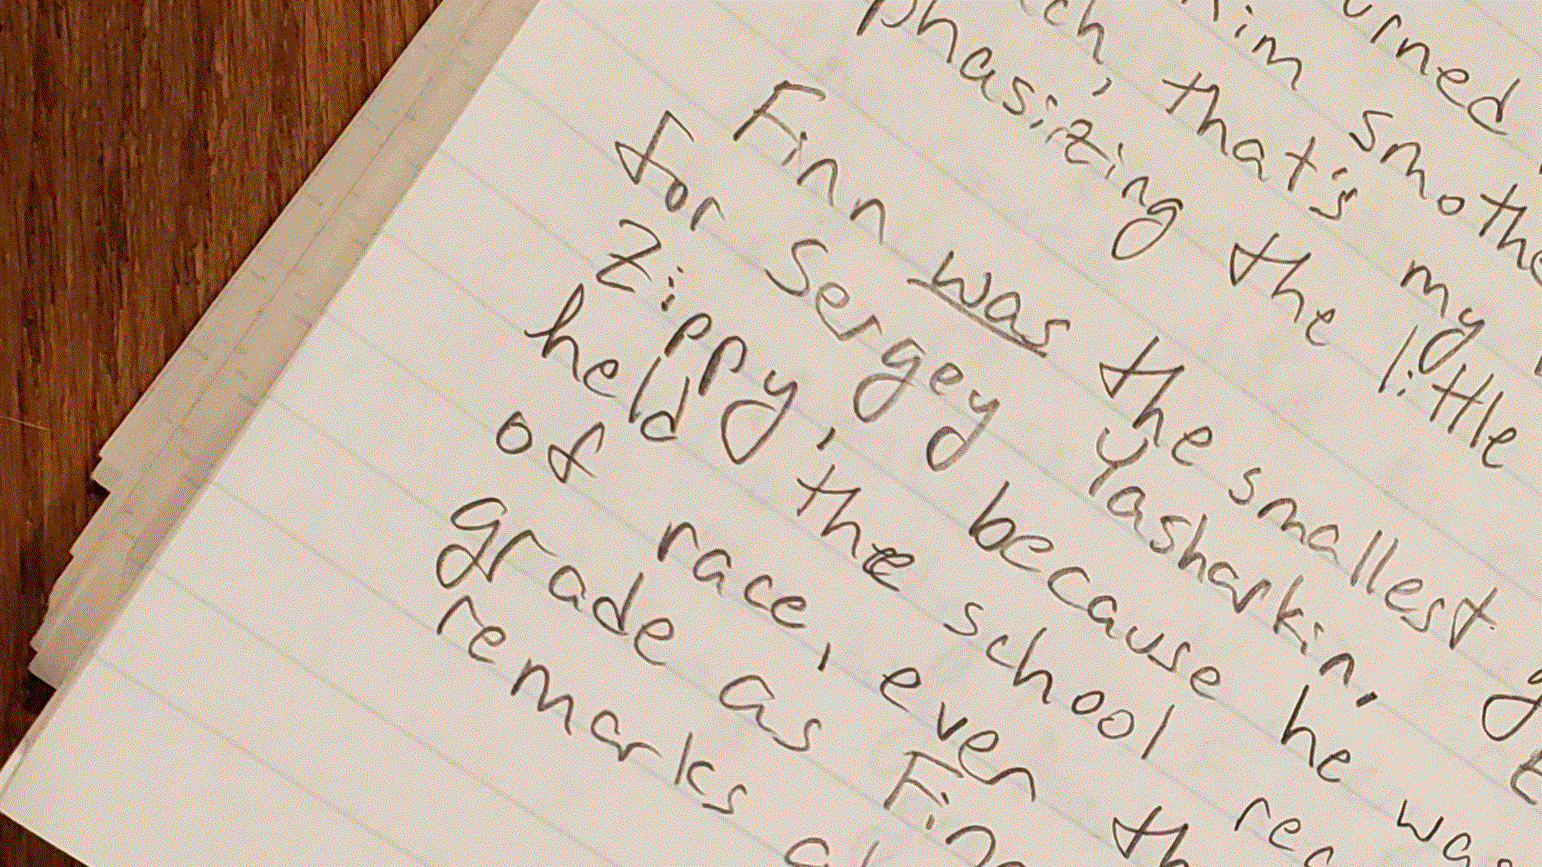 urned
him smothe
ch, that's my
phasizing the little
Finn was the smallest g
for Sergey Yasharkin. E
Zippy, because he was
held the school rec
of race, even th
grade as Finn
remarks a